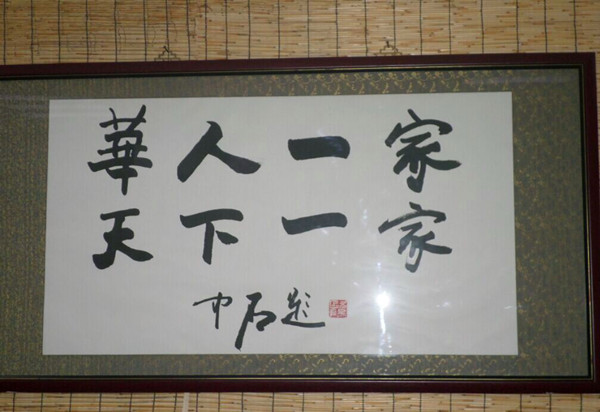 華人一家
天下一家
中石題